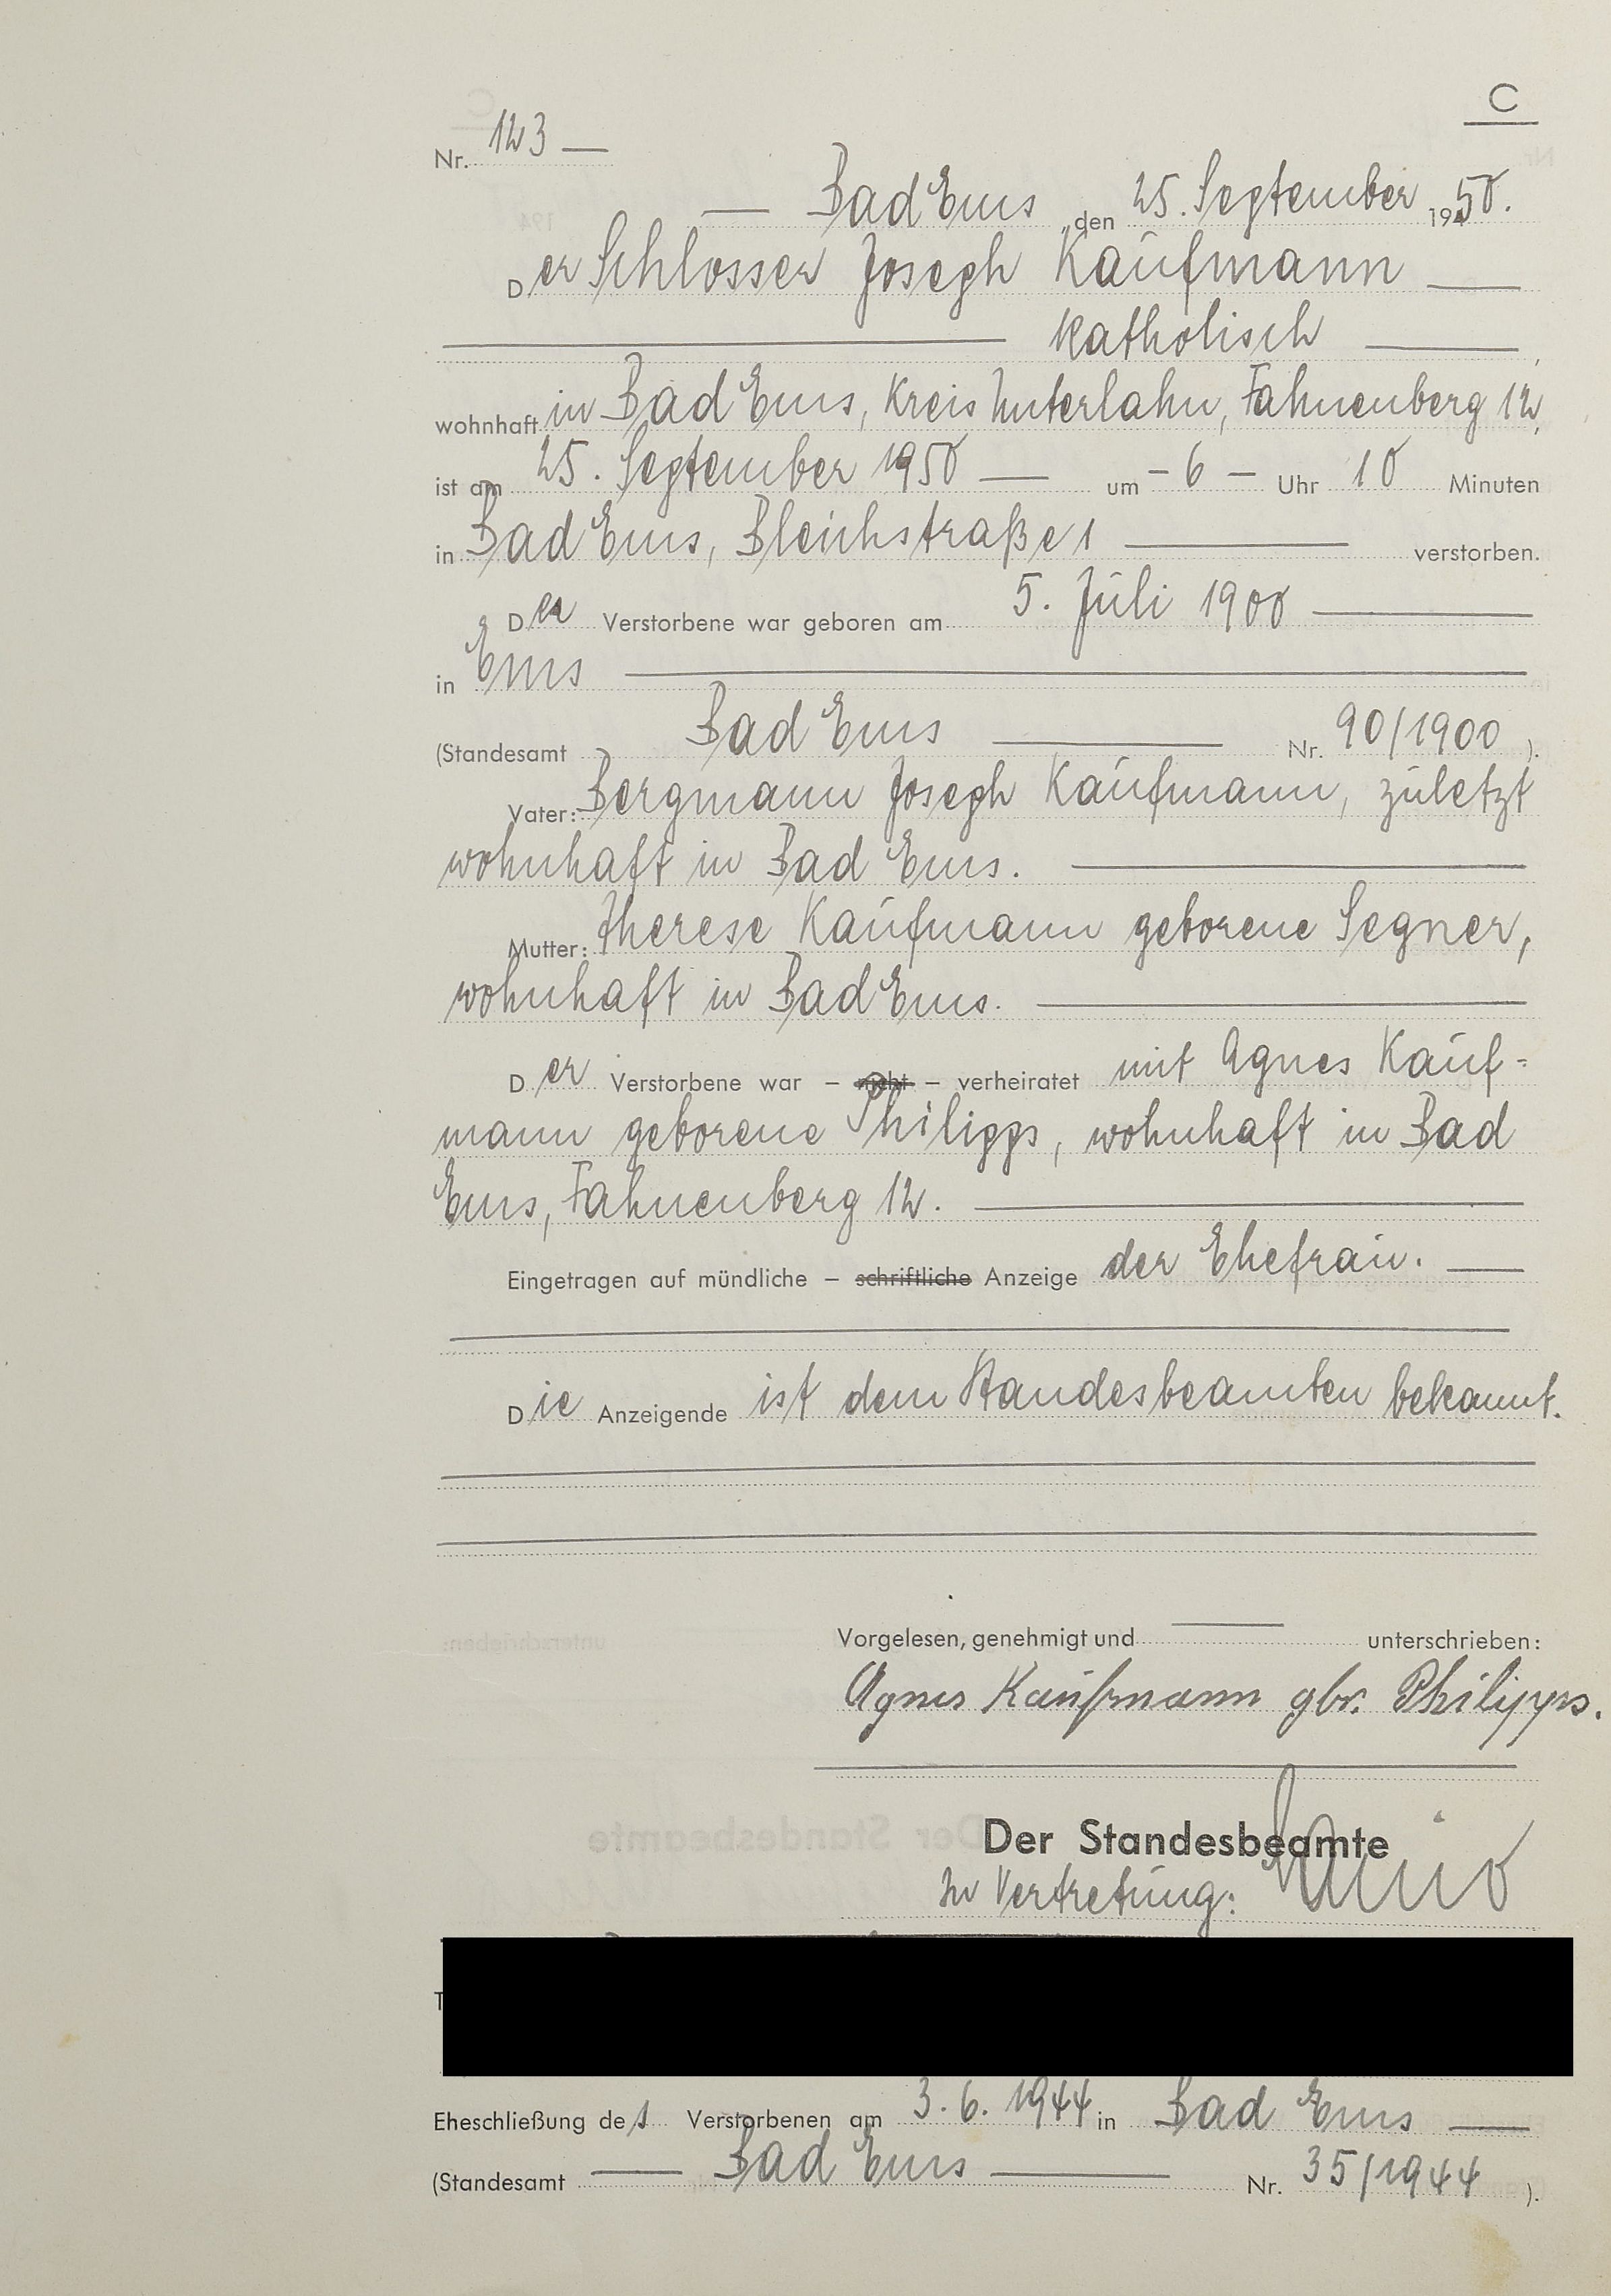 C
Nr. 123 —
— Bad Ems, den 25. September 1950.
Der Schlosser Joseph Kaufmann —
— katholisch —,
wohnhaft in Bad Ems, Kreis Unterlahn, Fahnenberg 12,
ist am 25. September 1950 — um – 6 – Uhr 10 Minuten
in Bad Ems, Bleichstraße 1 — verstorben.
Der Verstorbene war geboren am 5. Juli 1900 —
in Ems —
(Standesamt Bad Ems — Nr. 90/1900).
Vater: Bergmann Joseph Kaufmann, zuletzt
wohnhaft in Bad Ems. —
Mutter: Therese Kaufmann geborene Segner,
wohnhaft in Bad Ems. —
Der Verstorbene war – nicht – verheiratet mit Agnes Kauf-
mann geborene Philipps, wohnhaft in Bad
Ems, Fahnenberg 12. —
Eingetragen auf mündliche – schriftliche Anzeige der Ehefrau. —
Die Anzeigende ist dem Standesbeamten bekannt.
Vorgelesen, genehmigt und — unterschrieben:
Agnes Kaufmann gbr. Philipps.
Der Standesbeamte
In Vertretung:
Eheschließung des Verstorbenen am 3. 6. 1944 in Bad Ems —
(Standesamt — Bad Ems — Nr. 35/1944).